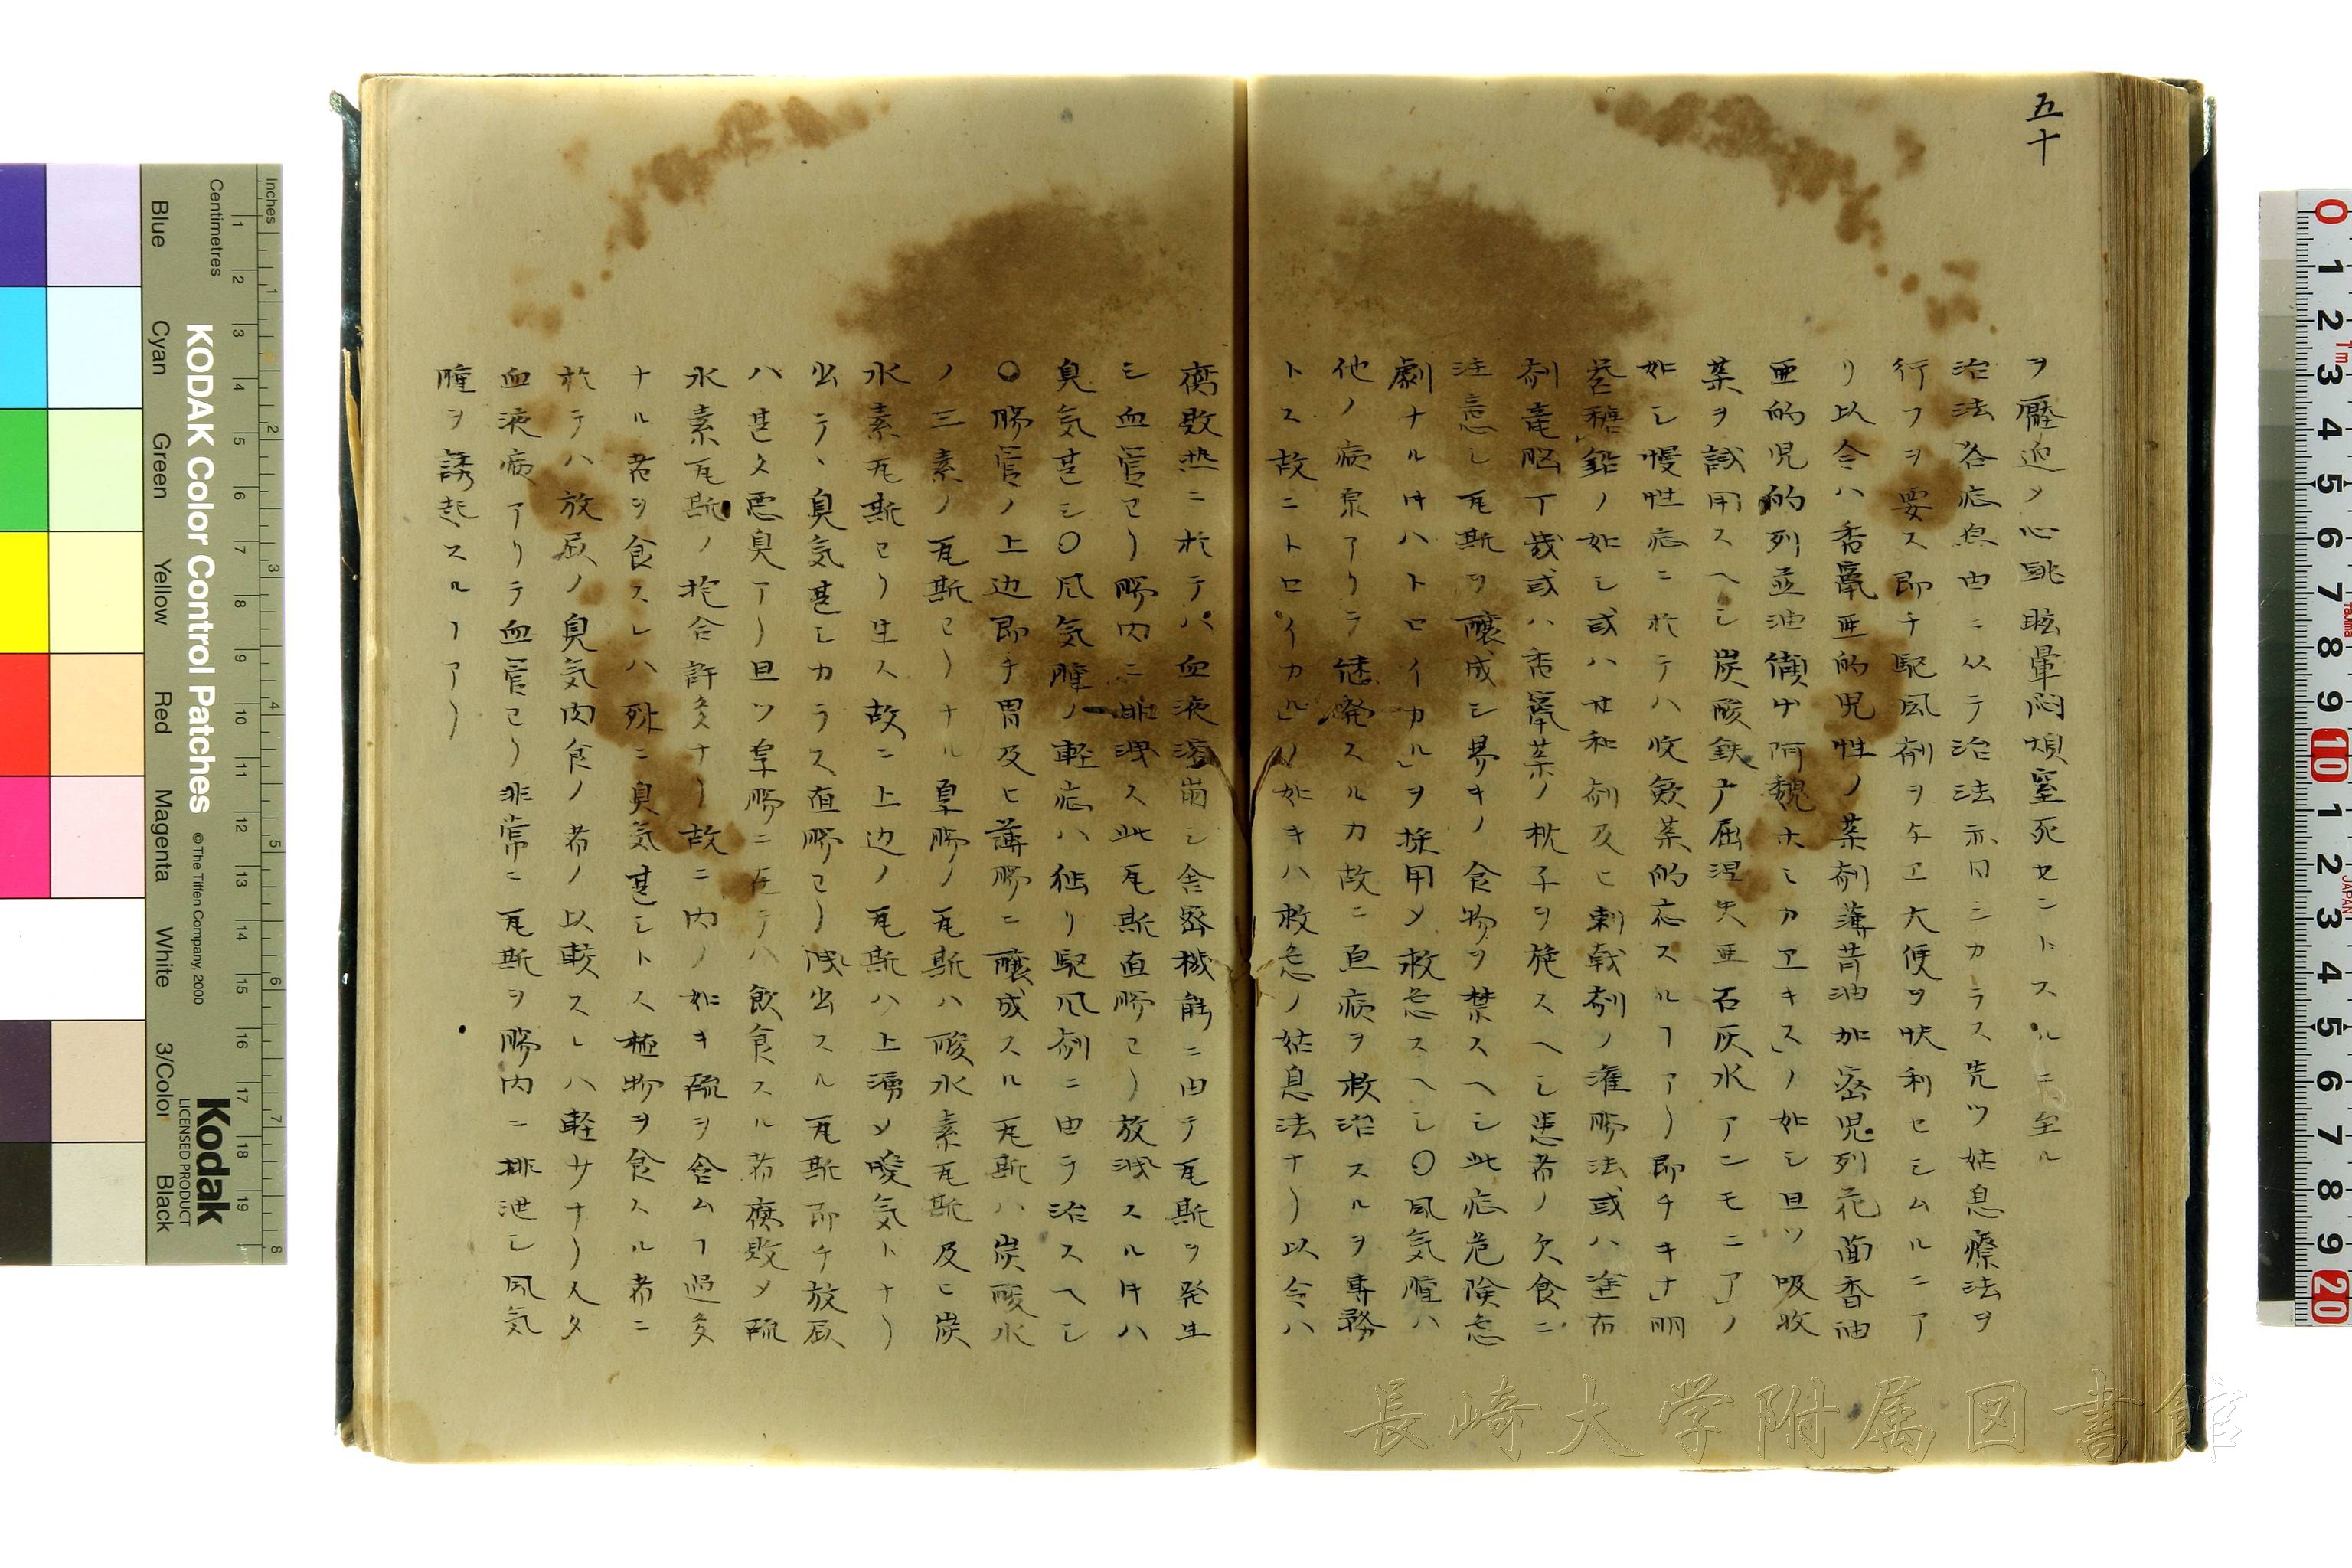 五十
ヲ壓迫ノ心跳眩暈悶煩窒死セントスルニ至ル
治法各症原由ニ从テ治法亦同シカラス先ツ姑息療法ヲ
行フヲ要ス即チ駆風剤ヲ与ヱ大便ヲ快利セシムルニア
リ以令ハ香竄亜的児性ノ薬剤薄荷油加密児列花茴香油
亜的児的列並油儐
阿魏
カヱキス」ノ如シ且ツ吸收
薬ヲ試用スヘシ炭酸鉄
屈涅矢亜石灰水アンモニア」ノ
如シ慢性症ニ於テハ收斂薬的応スルヿアリ即チキナ」明
礬糖鉛ノ如シ或ハ甘和剤及ヒ刺戟剤ノ灌腸法或ハ塗布
剤竜脳丁幾或ハ香竄薬ノ枕子ヲ施スヘシ患者ノ欠食ニ
注意シ瓦斯ヲ醸成シ易キノ食物ヲ禁スヘシ此症危険急
劇ナル㕝ハトロイカル」ヲ採用メ救急スヘシ〇風気腫ハ
他ノ病泉アリテ続発スルカ故ニ直病ヲ救治スルヲ専務
トス故ニトロイカル」ノ如キハ救急ノ姑息法ナリ以令ハ
腐敗熱ニ於テハ血液溶崩シ舎密機能ニ由テ瓦斯ヲ発生
シ血管ヨリ腸内ニ排泄ス此瓦斯直腸ヨリ放洩スル㕝ハ
臭気甚シ〇風気腫ノ軽症ハ独リ駆風剤ニ由テ治スヘシ
〇腸管ノ上辺即チ胃及ヒ薄腸ニ醸成スル瓦斯ハ炭酸水
ノ三素ノ瓦斯ヨリナル厚腸ノ瓦斯ハ酸水素瓦斯及ヒ炭
水素瓦斯ヨリ生ス故ニ上辺ノ瓦斯ハ上湧メ噯気トナリ
出テ、臭気甚シカラス直腸ヨリ洩出スル瓦斯即チ放屁
ハ甚タ悪臭アリ且ツ厚腸ニ在テハ飲食スル者腐敗メ硫
水素瓦斯ノ抱合許多ナリ故ニ肉ノ如キ硫ヲ含ムヿ過多
ナル者ヲ食スレハ殊ニ臭気甚シトス極物ヲ食スル者ニ
於テハ放屁ノ臭気肉食ノ者ノ以較スレハ軽サナリスタ
血液病アリテ血管ヨリ非常ニ瓦斯ヲ腸内ニ排泄シ風気
腫ヲ誘起スルヿアリ
長崎大学附属図書館
Inches
Centimetres
KODAK Color Control Patches
© The Tiffen Company, 2000
Kodak
LICENSED PRODUCT
Blue
Cyan
Green
Yellow
Red
Magenta
White
3/Color
Black
1
2
3
4
5
6
7
8
9
10
11
12
13
14
15
16
17
18
19
1
2
3
4
5
6
7
8
0
1
2
3
4
5
6
7
8
9
10
1
2
3
4
5
6
7
8
9
20
JAPAN